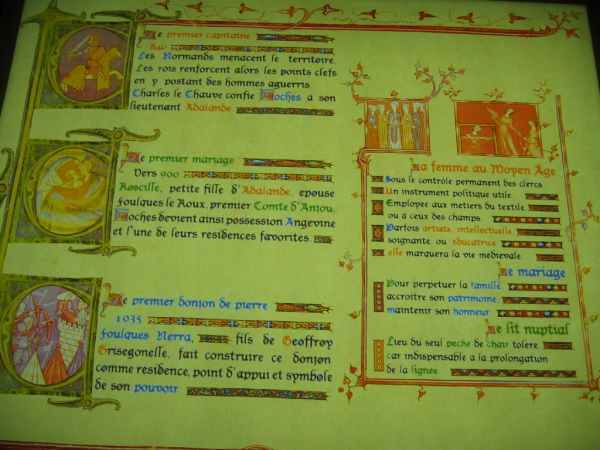 Le premier capitaine
840
Les Normands menacent le territoire.
Les rois renforcent alors les points clefs
en y postant des hommes aguerris
Charles le Chauve confie Loches à son
lieutenant Adalande
Le premier mariage
Vers 900
Roscille, petite fille d'Adalande, epouse
Foulques le Roux, premier Comte d'Anjou,
Loches devient ainsi possession Angevine
et l'une de leurs residences favorites.
Le premier donjon de pierre
1035
Foulques Nerra, fils de Geoffroy
Grisegonelle, fait construire ce donjon
comme residence, point d'appui et symbole
de son pouvoir
La femme au Moyen Âge
Sous le contrôle permanent des clercs
Un instrument politique utile
Employee aux metiers du textile
ou à ceux des champs
Parfois artiste, intellectuelle
soignante ou educatrice
elle marquera la vie medievale
Le mariage
Pour perpetuer la famille
accroitre son patrimoine,
maintenir son honneur
Le lit nuptial
Lieu du seul peche de chair tolere
car indispensable a la prolongation
de la lignee